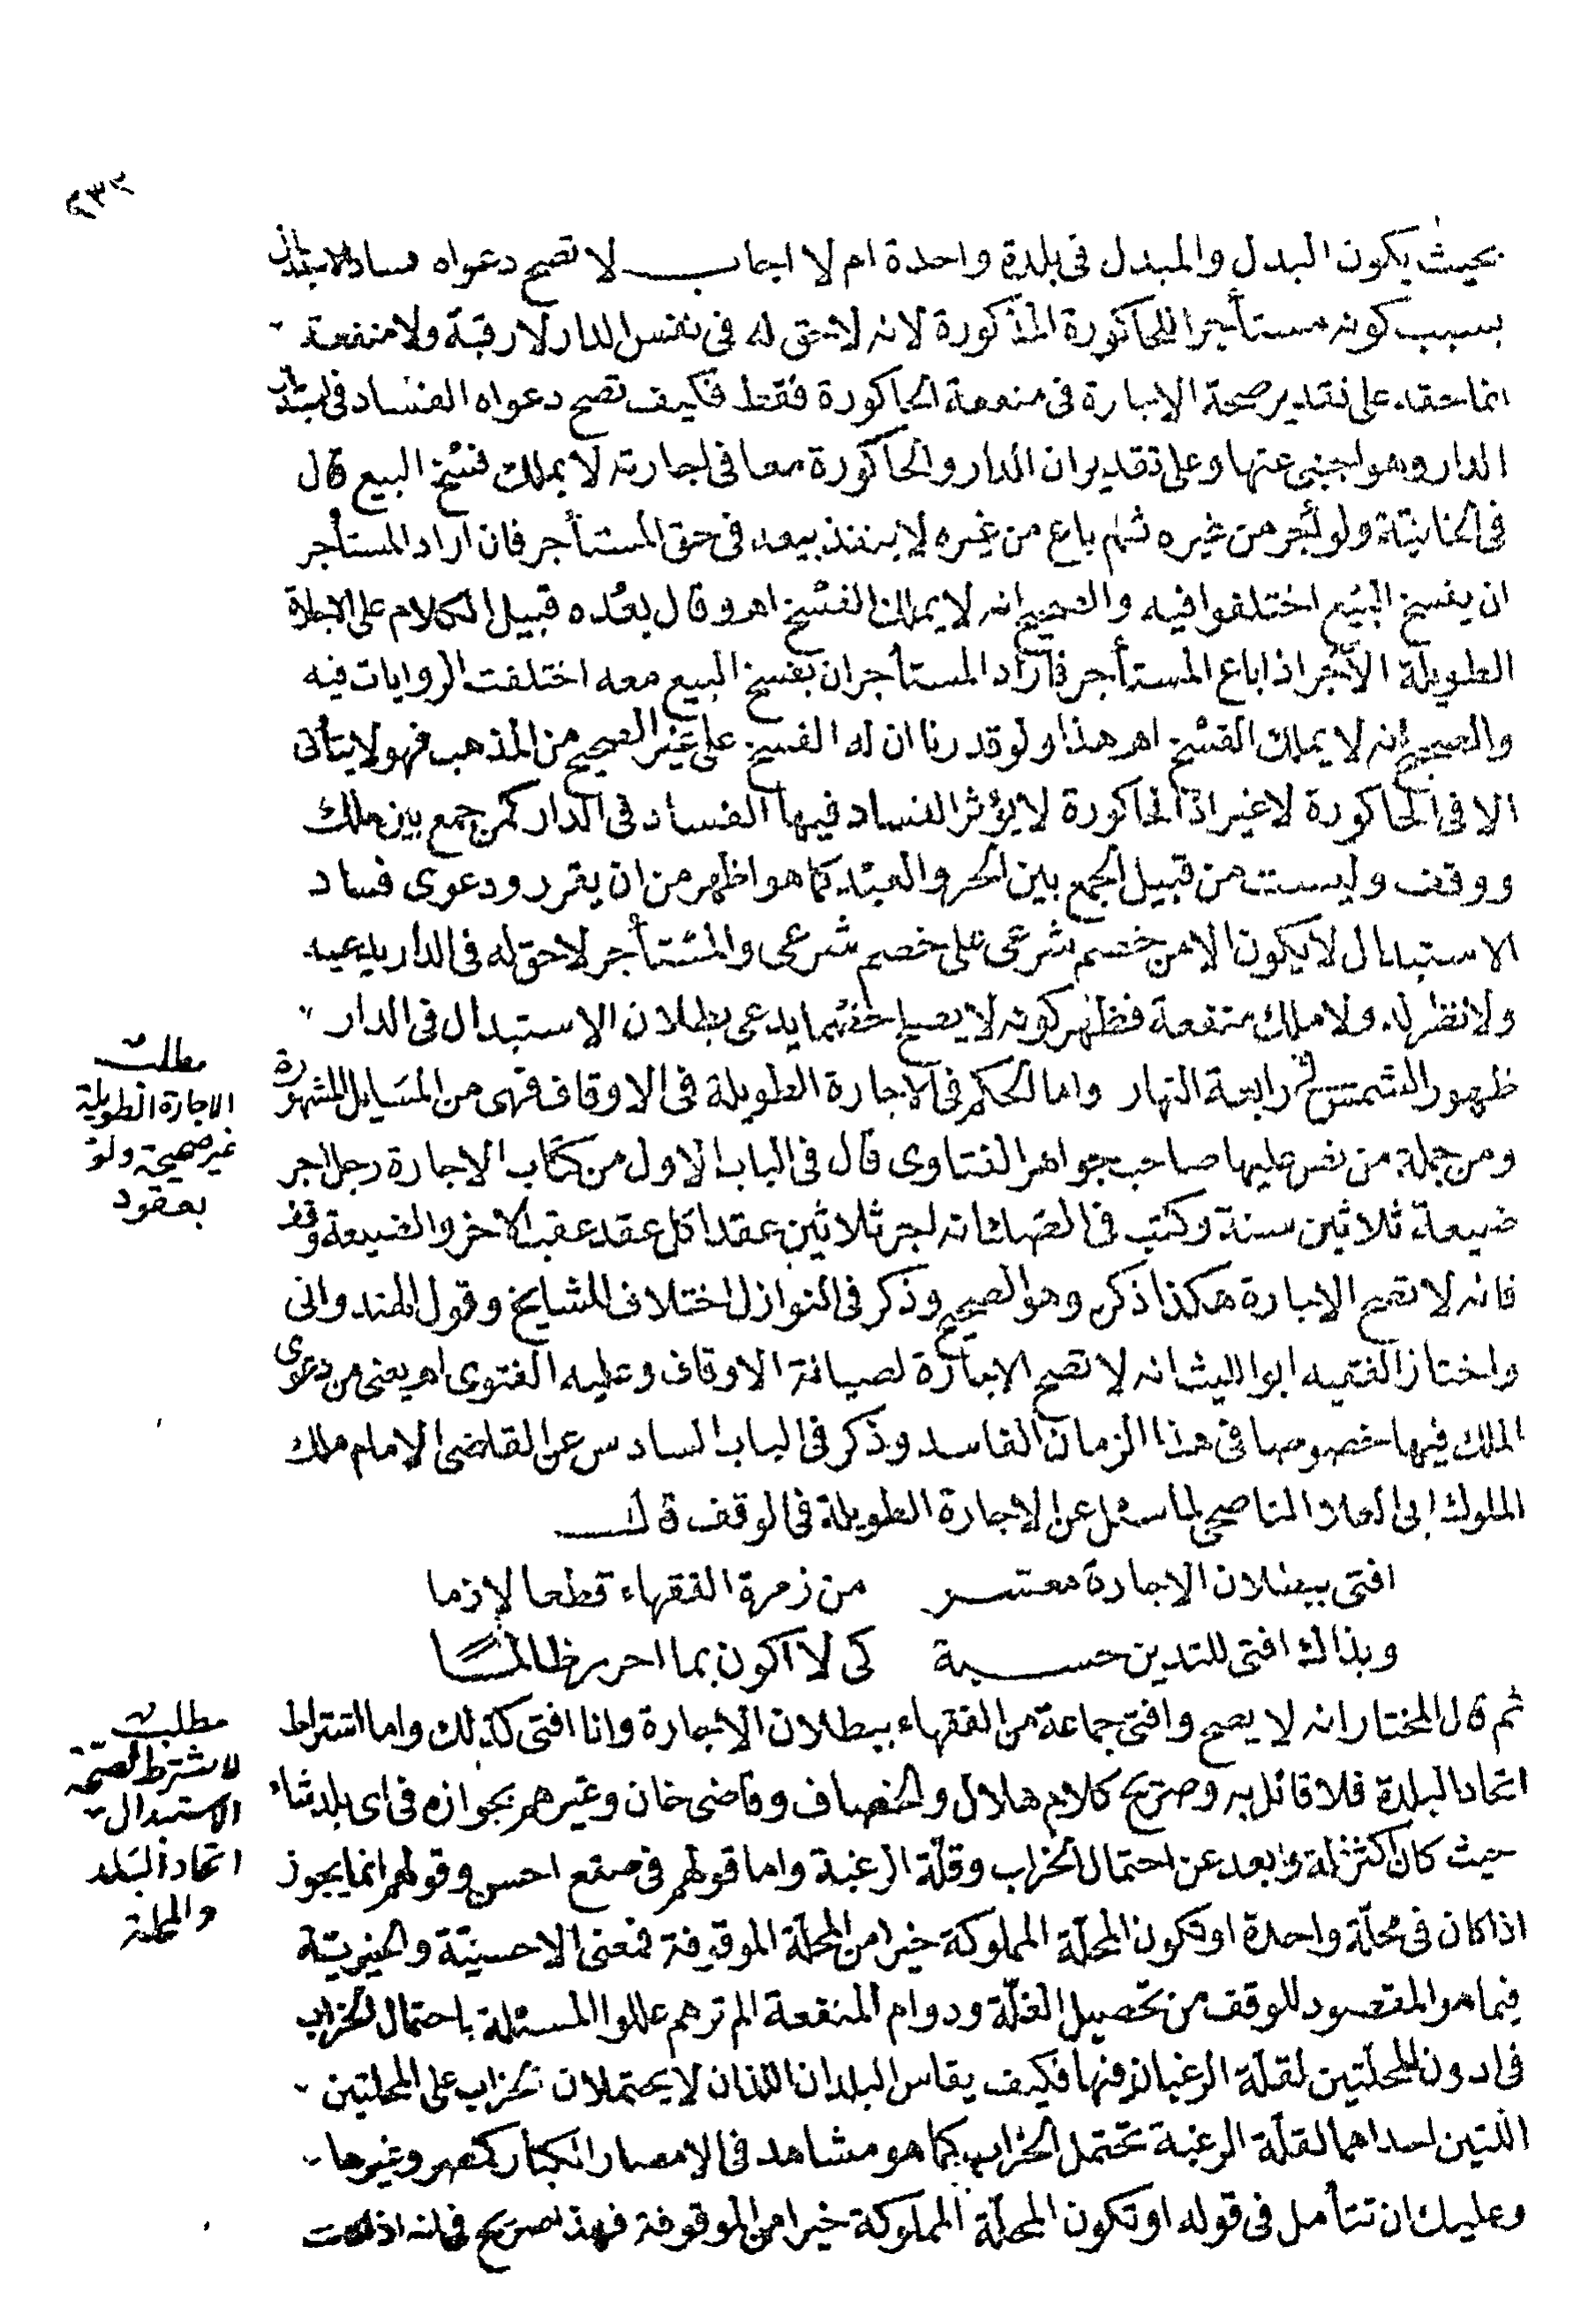 ٢٣٢
بحيث يكون البدل والمبدل فى بلدة واحدة ام لا اجاب لا تصح دعواه فساد الاستبدال
بسبب كونه مستأجرا للحاكورة المذكورة لانه لا حق له فى نفس الدار لا رقبة ولا منفعة
انما حقه على تقدير صحة الاجارة فى منفعة الحاكورة فقط فكيف تصح دعواه الفساد فى استبدال
الدار وهو اجنبى عنها وعلى تقدير ان الدار والحاكورة معا فى اجارته لا يملك فسخ البيع قال
فى الخانية ولو أجر من غيره ثم باع من غيره لا ينفذ بيعه فى حق المستأجر فان اراد المستأجر
ان يفسخ البيع اختلفوا فيه والصحيح انه لا يملك الفسخ اهـ وقال بعده قبيل الكلام على الاجارة
الطويلة الآجر اذا باع المستأجر فاراد المستأجر ان يفسخ البيع معه اختلفت الروايات فيه
والصحيح انه لا يملك الفسخ اهـ هذا ولو قدرنا ان له الفسخ على غير الصحيح من المذهب فهو لا يتأتى
الا فى الحاكورة لا غير اذ الحاكورة لا يؤثر الفساد فيها الفساد فى الدار كمن جمع بين ملك
ووقف وليست من قبيل الجمع بين الحر والعبد كما هو اظهر من ان يقرر ودعوى فساد
الاستبدال لا يكون الا من خصم شرعى على خصم شرعى والمستأجر لا حق له فى الدار يدعيه
ولا نظر له ولا ملك منفعة فظهر كونه لا يصلح خصما يدعى بطلان الاستبدال فى الدار
ظهور الشمس فى رابعة النهار واما الحكم فى الاجارة الطويلة فى الاوقاف فهى من المسايل المشهورة
ومن جملة من نص عليها صاحب جواهر الفتاوى قال فى الباب الاول من كتاب الاجارة رجل اجر
ضيعة ثلاثين سنة وكتب فى الصك انه اجر ثلاثين عقدا كل عقد عقب الآخر والضيعة وقف
فانه لا تصح الاجارة هكذا ذكر وهو الصحيح وذكر فى النوازل اختلاف المشايخ وقول الهندوانى
واختار الفقيه ابو الليث انه لا تصح الاجارة لصيانة الاوقاف وعليه الفتوى اهـ يعنى من دعوى
الملك فيها خصوصا فى هذا الزمان الفاسد وذكر فى الباب السادس عن القاضى الامام ملك
الملوك ابى العلاء الناصحى لما سئل عن الاجارة الطويلة فى الوقف قال
افتى ببطلان الاجارة معشر من زمرة الفقهاء قطعا لازما
وبذاك افتى للتدين حسبة كى لا اكون بما احرر ظالما
ثم قال المختار انه لا يصح وافتى جماعة من الفقهاء ببطلان الاجارة وانا افتى كذلك واما اشتراط
اتحاد البلدة فلا قائل به وصريح كلام هلال والخصاف وقاضى خان وغيرهم بجوازه فى اى بلد شاء
حيث كان اكثر غلة وابعد عن احتمال الخراب وقلة الرغبة واما قولهم فى صقع احسن وقولهم انما يجوز
اذا كان فى محلة واحدة او تكون المحلة المملوكة خيرا من المحلة الموقوفة فمعنى الاحسنية والخيرية
فيما هو المقصود للوقف من تحصيل الغلة ودوام المنفعة الم ترهم عللوا المسئلة باحتمال الخراب
فى ادون المحلتين لقلة الرغبات فيها فكيف يقاس البلدان اللذان لا يحتملان الخراب على المحلتين
اللتين احداهما لقلة الرغبة تحتمل الخراب كما هو مشاهد فى الامصار الكبار كمصر وغيرها
وعليك ان تتأمل فى قوله او تكون المحلة المملوكة خيرا من الموقوفة فهذا صريح فى انه اذا كانت
مطلب
الاجارة الطويلة
غير صحيحة ولو
بعقود
مطلب
لا يشترط لصحة
الاستبدال
اتحاد البلد
والمحلة